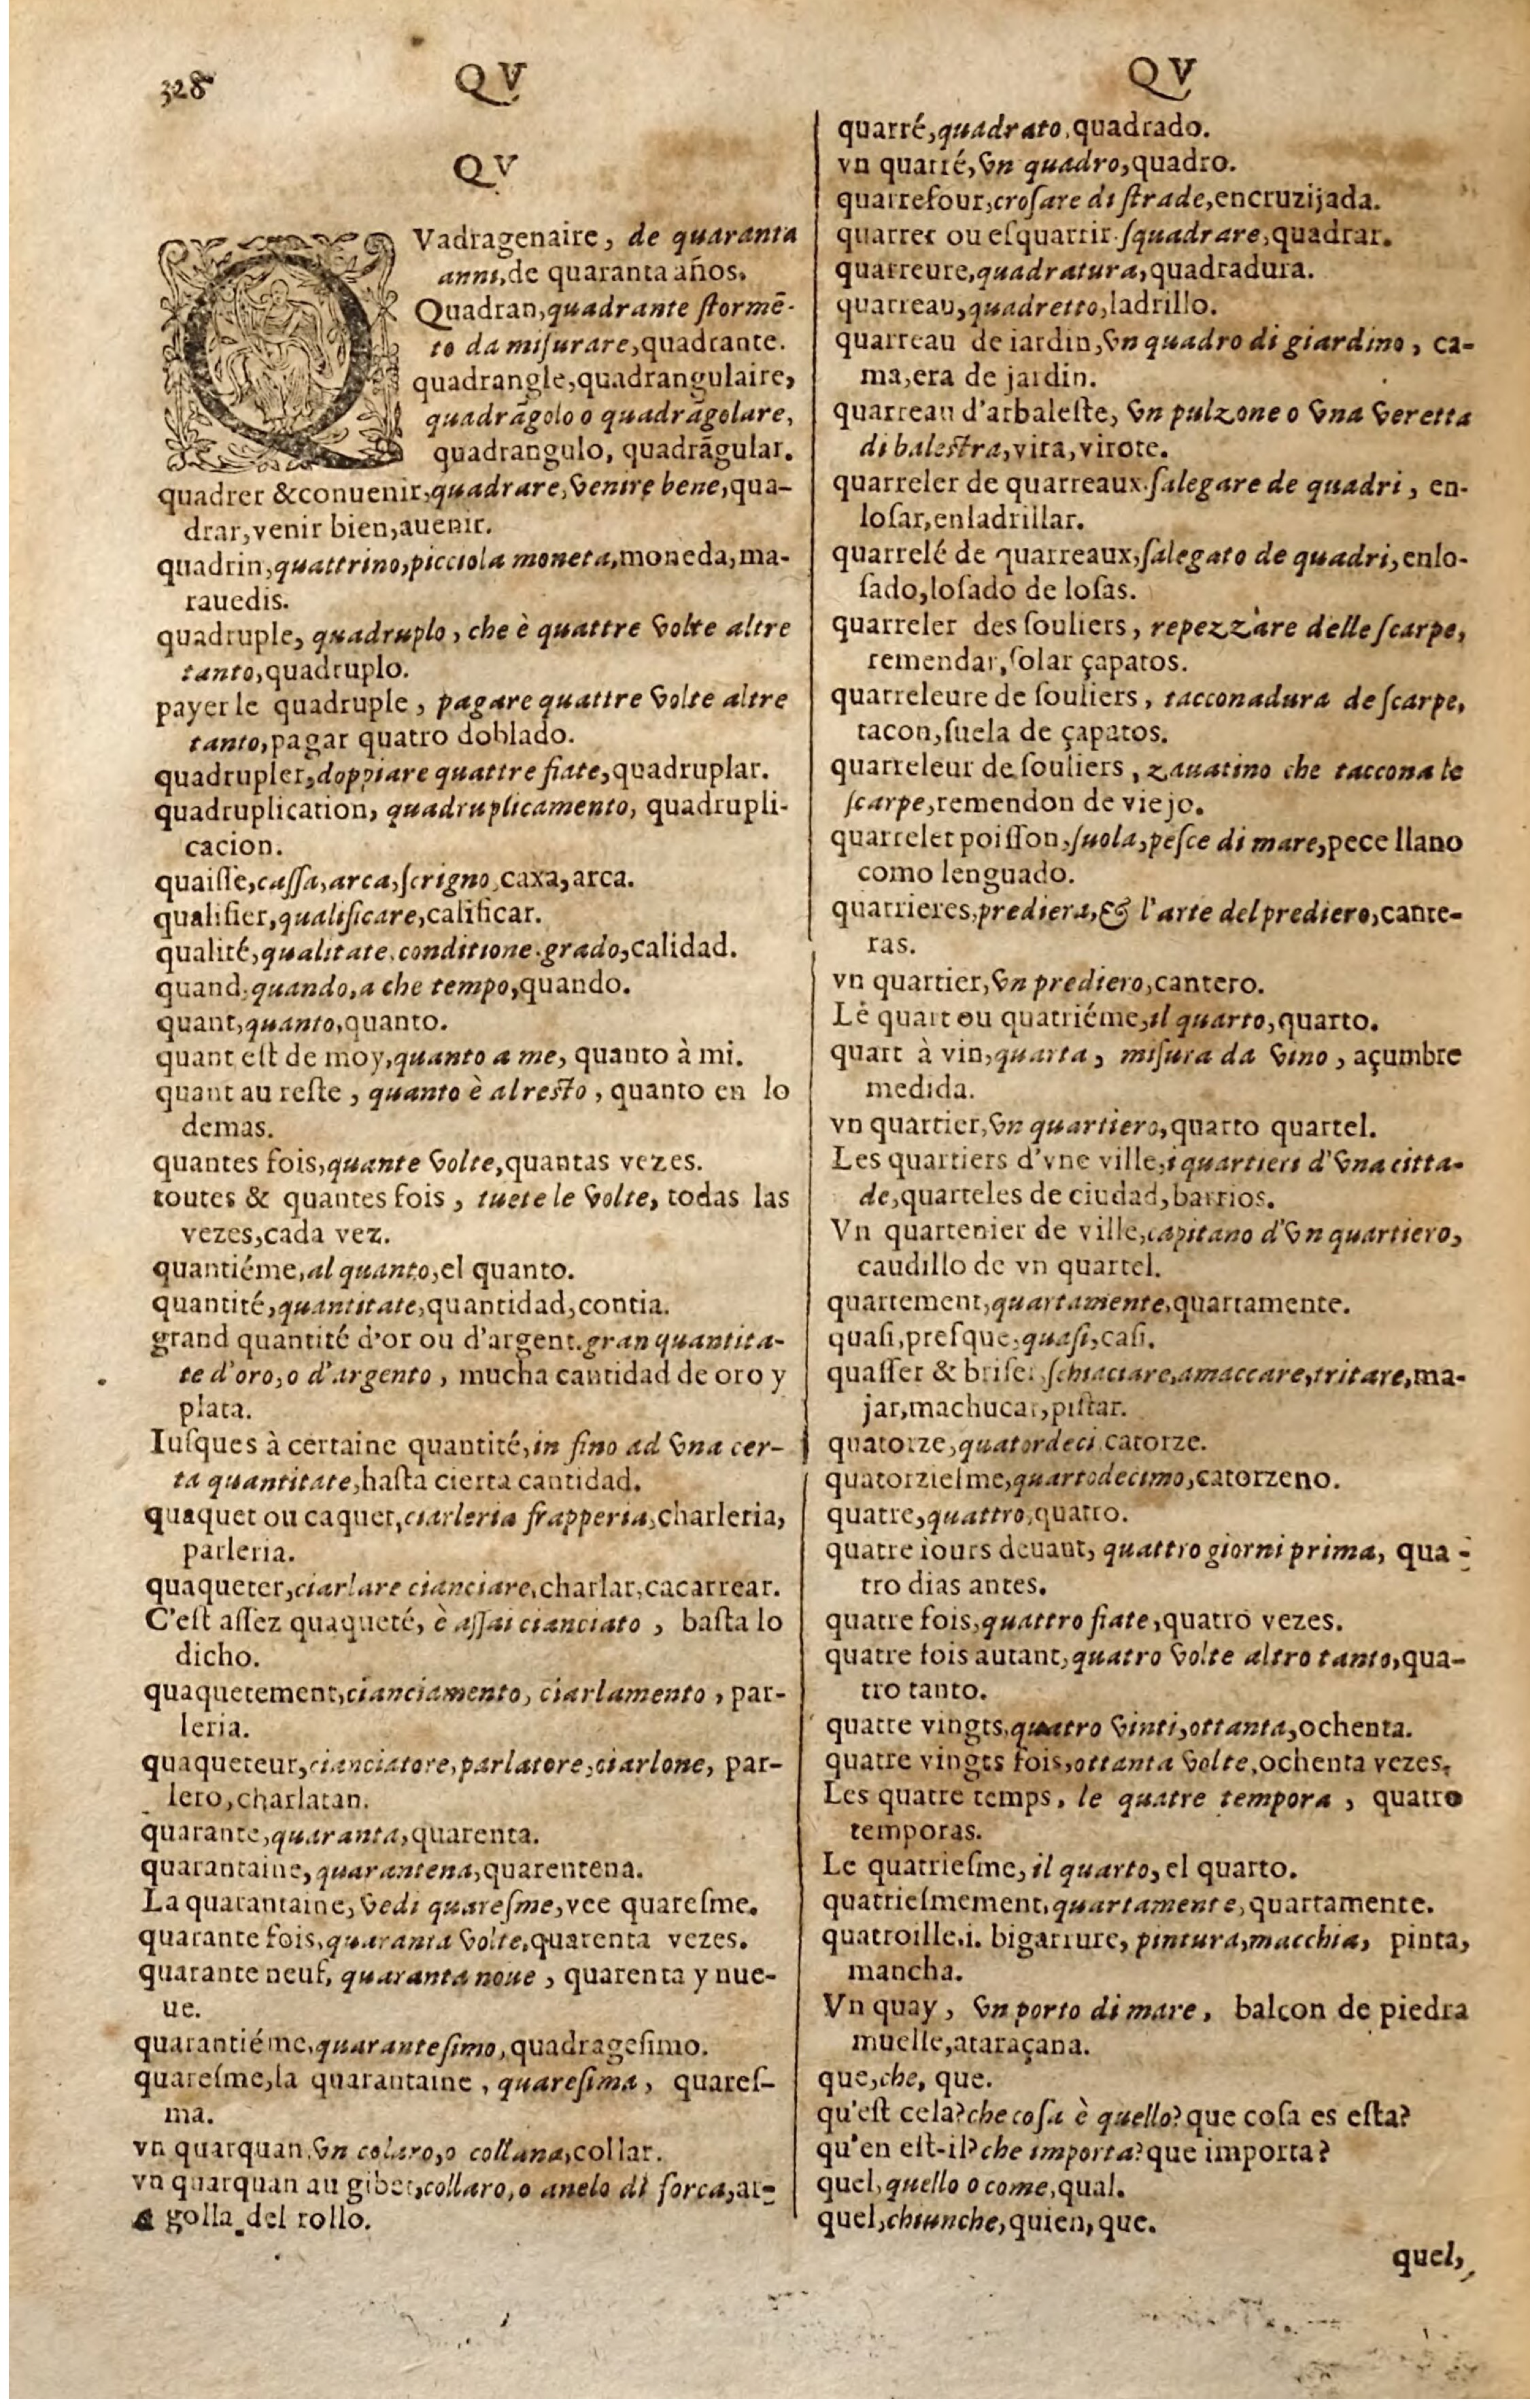 328 QV QV
QV
QVadragenaire, de quaranta
anni,de quaranta años.
Quadran,quadrante ſtormē-
to da miſurare,quadrante.
quadrangle,quadrangulaire,
quadrāgolo o quadrāgolare,
quadrangulo, quadrāgular.
quadrer &conuenir,quadrare,venire bene,qua-
drar,venir bien,auenir.
quadrin,quattrino,picciola moneta,moneda,ma-
rauedis.
quadruple, quadruplo, che è quattre volte altre
tanto,quadruplo.
payer le quadruple, pagare quattre volte altre
tanto,pagar quatro doblado.
quadrupler,doppiare quattre fiate,quadruplar.
quadruplication, quadruplicamento, quadrupli-
cacion.
quaiſſe,caſſa,arca,ſcrigno,caxa,arca.
qualifier,qualificare,calificar.
qualité,qualitate,conditione.grado,calidad.
quand.quando,a che tempo,quando.
quant,quanto,quanto.
quant eſt de moy,quanto a me, quanto à mi.
quant au reſte, quanto è al reſto, quanto en lo
demas.
quantes fois,quante volte,quantas vezes.
toutes & quantes fois, tuete le volte, todas las
vezes,cada vez.
quantiéme,al quanto,el quanto.
quantité,quantitate,quantidad,contia.
grand quantité d'or ou d'argent.gran quantita-
te d'oro,o d'argento, mucha cantidad de oro y
plata.
Iuſques à certaine quantité,in fino ad vna cer-
ta quantitate,haſta cierta cantidad.
quaquet ou caquet,ciarleria frapperia,charleria,
parleria.
quaqueter,ciarlare cianciare,charlar,cacarrear.
C'eſt aſſez quaqueté, è aſſai cianciato, baſta lo
dicho.
quaquetement,cianciamento, ciarlamento, par-
leria.
quaqueteur,cianciatore,parlatore,ciarlone, par-
lero,charlatan.
quarante,quaranta,quarenta.
quarantaine,quarantena,quarentena.
La quarantaine,vedi quareſme,vee quareſme.
quarante fois,quaranta volte,quarenta vezes.
quarante neuf, quaranta noue, quarenta y nue-
ue.
quarantiéme,quaranteſimo,quadrageſimo.
quareſme,la quarantaine, quareſima, quareſ-
ma.
vn quarquan.vn colaro,o collana,collar.
vn quarquan au gibet,collaro,o anelo di forca,ar-
golla del rollo.
quarré,quadrato,quadrado.
vn quarré,vn quadro,quadro.
quarrefour,croſare di ſtrade,encruzijada.
quarrer ou eſquarrir.ſquadrare,quadrar.
quarreure,quadratura,quadradura.
quarreau,quadretto,ladrillo.
quarreau de iardin,vn quadro di giardino, ca-
ma,era de jardin.
quarreau d'arbaleſte, vn pulzone o vna veretta
di baleſtra,vira,virote.
quarreler de quarreaux.ſalegare de quadri, en-
loſar,enladrillar.
quarrelé de quarreaux,ſalegato de quadri,enlo-
ſado,loſado de loſas.
quarreler des ſouliers, repezzàre delle ſcarpe,
remendar,ſolar çapatos.
quarreleure de ſouliers, tacconadura de ſcarpe,
tacon,ſuela de çapatos.
quarreleur de ſouliers, zauatino che taccona le
ſcarpe,remendon de viejo.
quarrelet poiſſon,ſuola,peſce di mare,pece llano
como lenguado.
quarrieres,prediera,& l'arte del prediero,cante-
ras.
vn quartier,vn prediero,cantero.
Le quart ou quatriéme,il quarto,quarto.
quart à vin,quarta, miſura da vino, açumbre
medida.
vn quartier,vn quartiero,quarto quartel.
Les quartiers d'vne ville,i quartieri d'vna citta-
de,quarteles de ciudad,barrios.
Vn quartenier de ville,capitano d'vn quartiero,
caudillo de vn quartel.
quartement,quartamente,quartamente.
quaſi,preſque,quaſi,caſi.
quaſſer & briſer,ſchiacciare,amaccare,tritare,ma-
jar,machucar,piſtar.
quatorze,quatordeci,catorze.
quatorzieſme,quartodecimo,catorzeno.
quatre,quattro,quatro.
quatre iours deuaut, quattro giorni prima, qua-
tro dias antes.
quatre fois,quattro fiate,quatro vezes.
quatre fois autant,quatro volte altro tanto,qua-
tro tanto.
quatre vingts,quatro vinti,ottanta,ochenta.
quatre vingts fois,ottanta volte,ochenta vezes.
Les quatre temps, le quatre tempora, quatro
temporas.
Le quatrieſme,il quarto,el quarto.
quatrieſmement,quartamente,quartamente.
quatroille.i. bigarrure, pintura,macchia, pinta,
mancha.
Vn quay, vn porto di mare, balcon de piedra
muelle,ataraçana.
que,che, que.
qu'eſt cela?che coſa è quello?que coſa es eſta?
qu'en eſt-il?che importa?que importa?
quel,quello o come,qual.
quel,chiunche,quien,que.
quel,